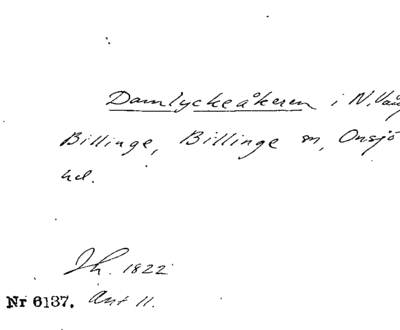 Damlyckeåkeren i N. Vång
Billinge, Billinge sn, Onsjö
hd.
Jh. 1822
Nr 6137. Ant 11.